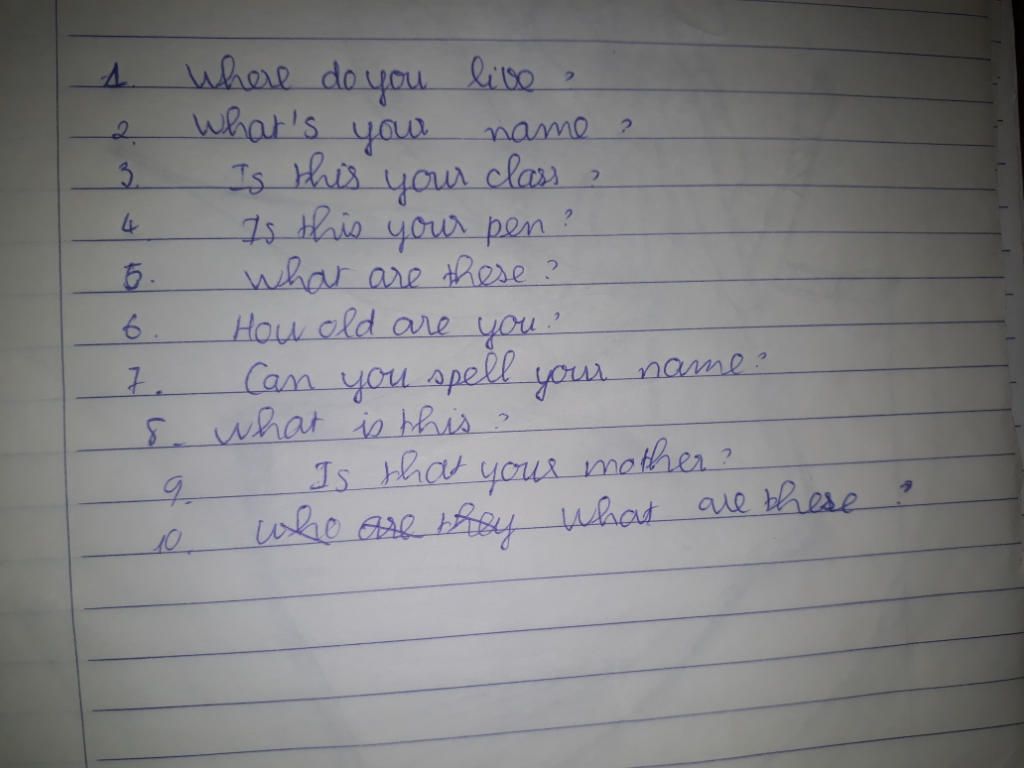 1. Where do you live ?
2. What's your name ?
3. Is this your class ?
4 Is this your pen ?
5. What are these ?
6. How old are you ?
7. Can you spell your name ?
8. What is this ?
9. Is that your mother ?
10. Who are they What are these ?